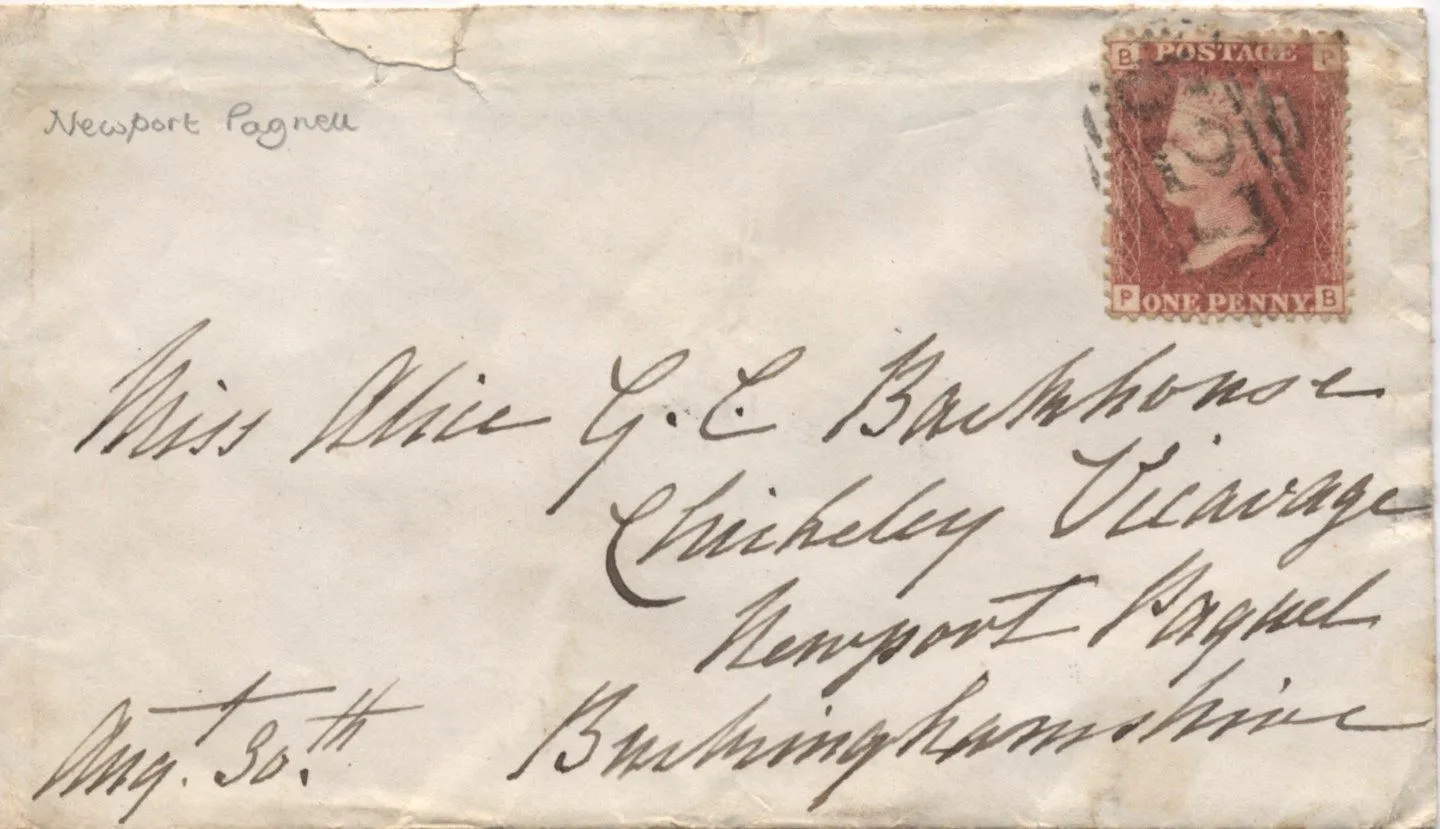 Newport Pagnell
B POSTAGE P
P ONE PENNY. B
Miss Alice G. C Backhouse
Chicheley Vicarage
Newport Pagnel
Buckinghamshire
Augt. 30.th